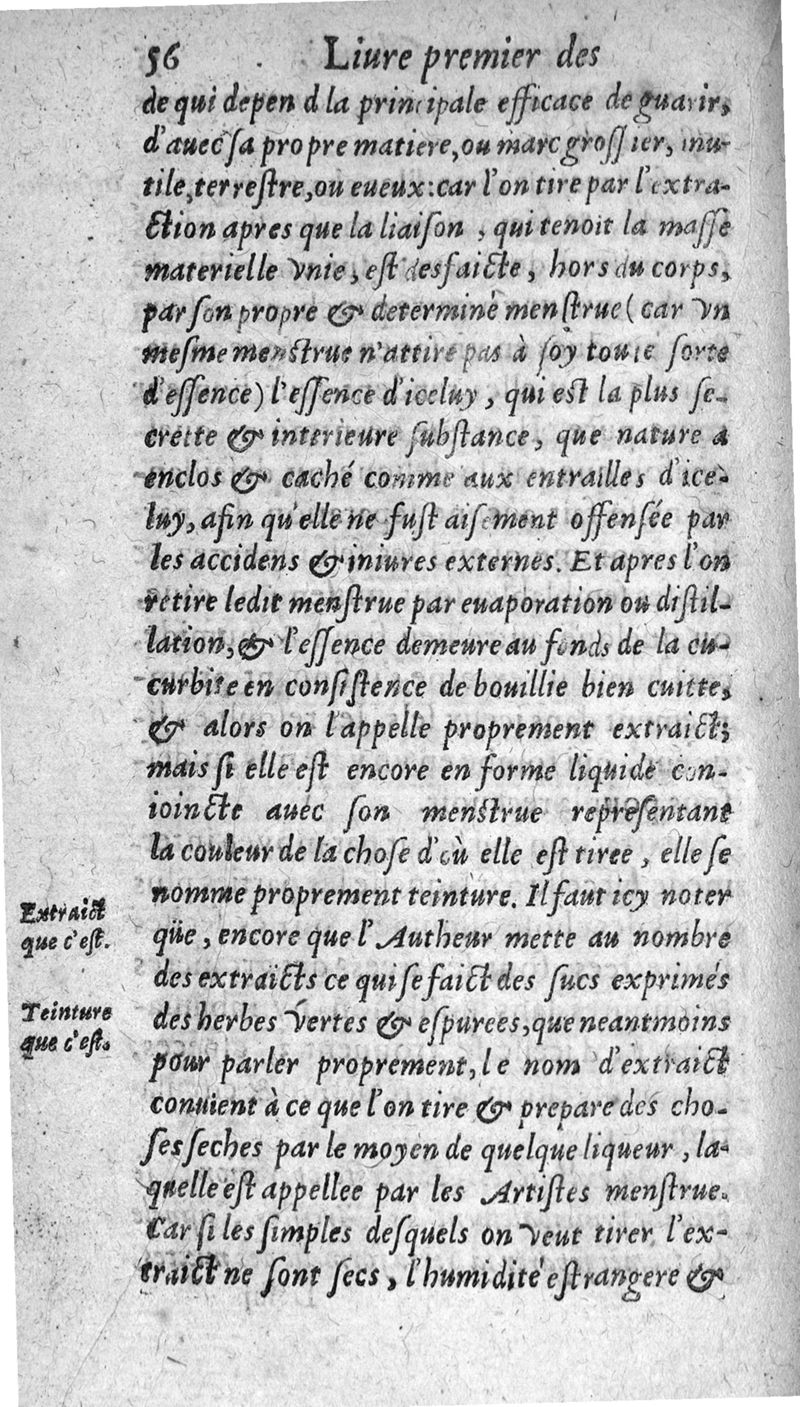 56 Liure premier des
de qui depend la principale efficace de guarir,
d'auec sa propre matiere, ou marc grossier, inu-
tile, terrestre, ou eueux: car l'on tire par l'extra-
ction apres que la liaison, qui tenoit la masse
materielle vnie, est desfaicte, hors du corps,
par son propre & determiné menstrue (car vn
mesme menstrue n'attire pas à soy toute sorte
d'essence) l'essence d'iceluy, qui est la plus se-
crette & interieure substance, que nature a
enclos & caché comme aux entrailles d'ice-
luy, afin qu'elle ne fust aisement offensée par
les accidens & iniures externes. Et apres l'on
retire ledit menstrue par euaporation ou distil-
lation, & l'essence demeure au fonds de la cu-
curbite en consistence de bouillie bien cuitte,
& alors on l'appelle proprement extraict;
mais si elle est encore en forme liquide con-
ioincte auec son menstrue representant
la couleur de la chose d'où elle est tiree, elle se
nomme proprement teinture. Il faut icy noter
qüe, encore que l'Autheur mette au nombre
des extraicts ce qui se faict des sucs exprimés
des herbes vertes & espurees, que neantmoins
pour parler proprement, le nom d'extraict
conuient à ce que l'on tire & prepare des cho-
ses seches par le moyen de quelque liqueur, la-
quelle est appellee par les Artistes menstrue.
Car si les simples desquels on veut tirer l'ex-
traict ne sont secs, l'humidité estrangere &
Extraict
que c'est.
Teinture
que c'est.